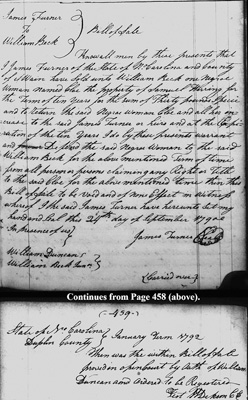 James Turner
To
William Beck
Bill of Sale
Know all men by these presents that
I James Turner of the State of No Carolina and County
of have Sold unto William Beck one Negroe
Woman named the property of Samuel for
the Term of ten Years for the Sum of thirty pounds Specie
and to return the said Negroe woman and all her in
crease to the said James Turner or heirs and at the Expi
ration of the ten Years I do by these presents warrant
and Defend the said Negroe Woman to the said
William Beck for the above mentioned Term of time
from all person or persons claiming any Right or Title
to the said for the above mentioned Time then this
Bill of Sale to be Void and of none Effect in witness
whereof I the said James Turner have hereunto Set my
hand and Seal this 24th day of September
In presence of us
James Turner
William Duncan
William Beck Junr
(Carried over)
Continues from Page 458 (above).
-459-
State of No Carolina
Duplin County
January Term 1792
Then was the within Bill of Sale
proven in open Court by Oath of William
Duncan and ordered to be Registered
Test Dickson CC